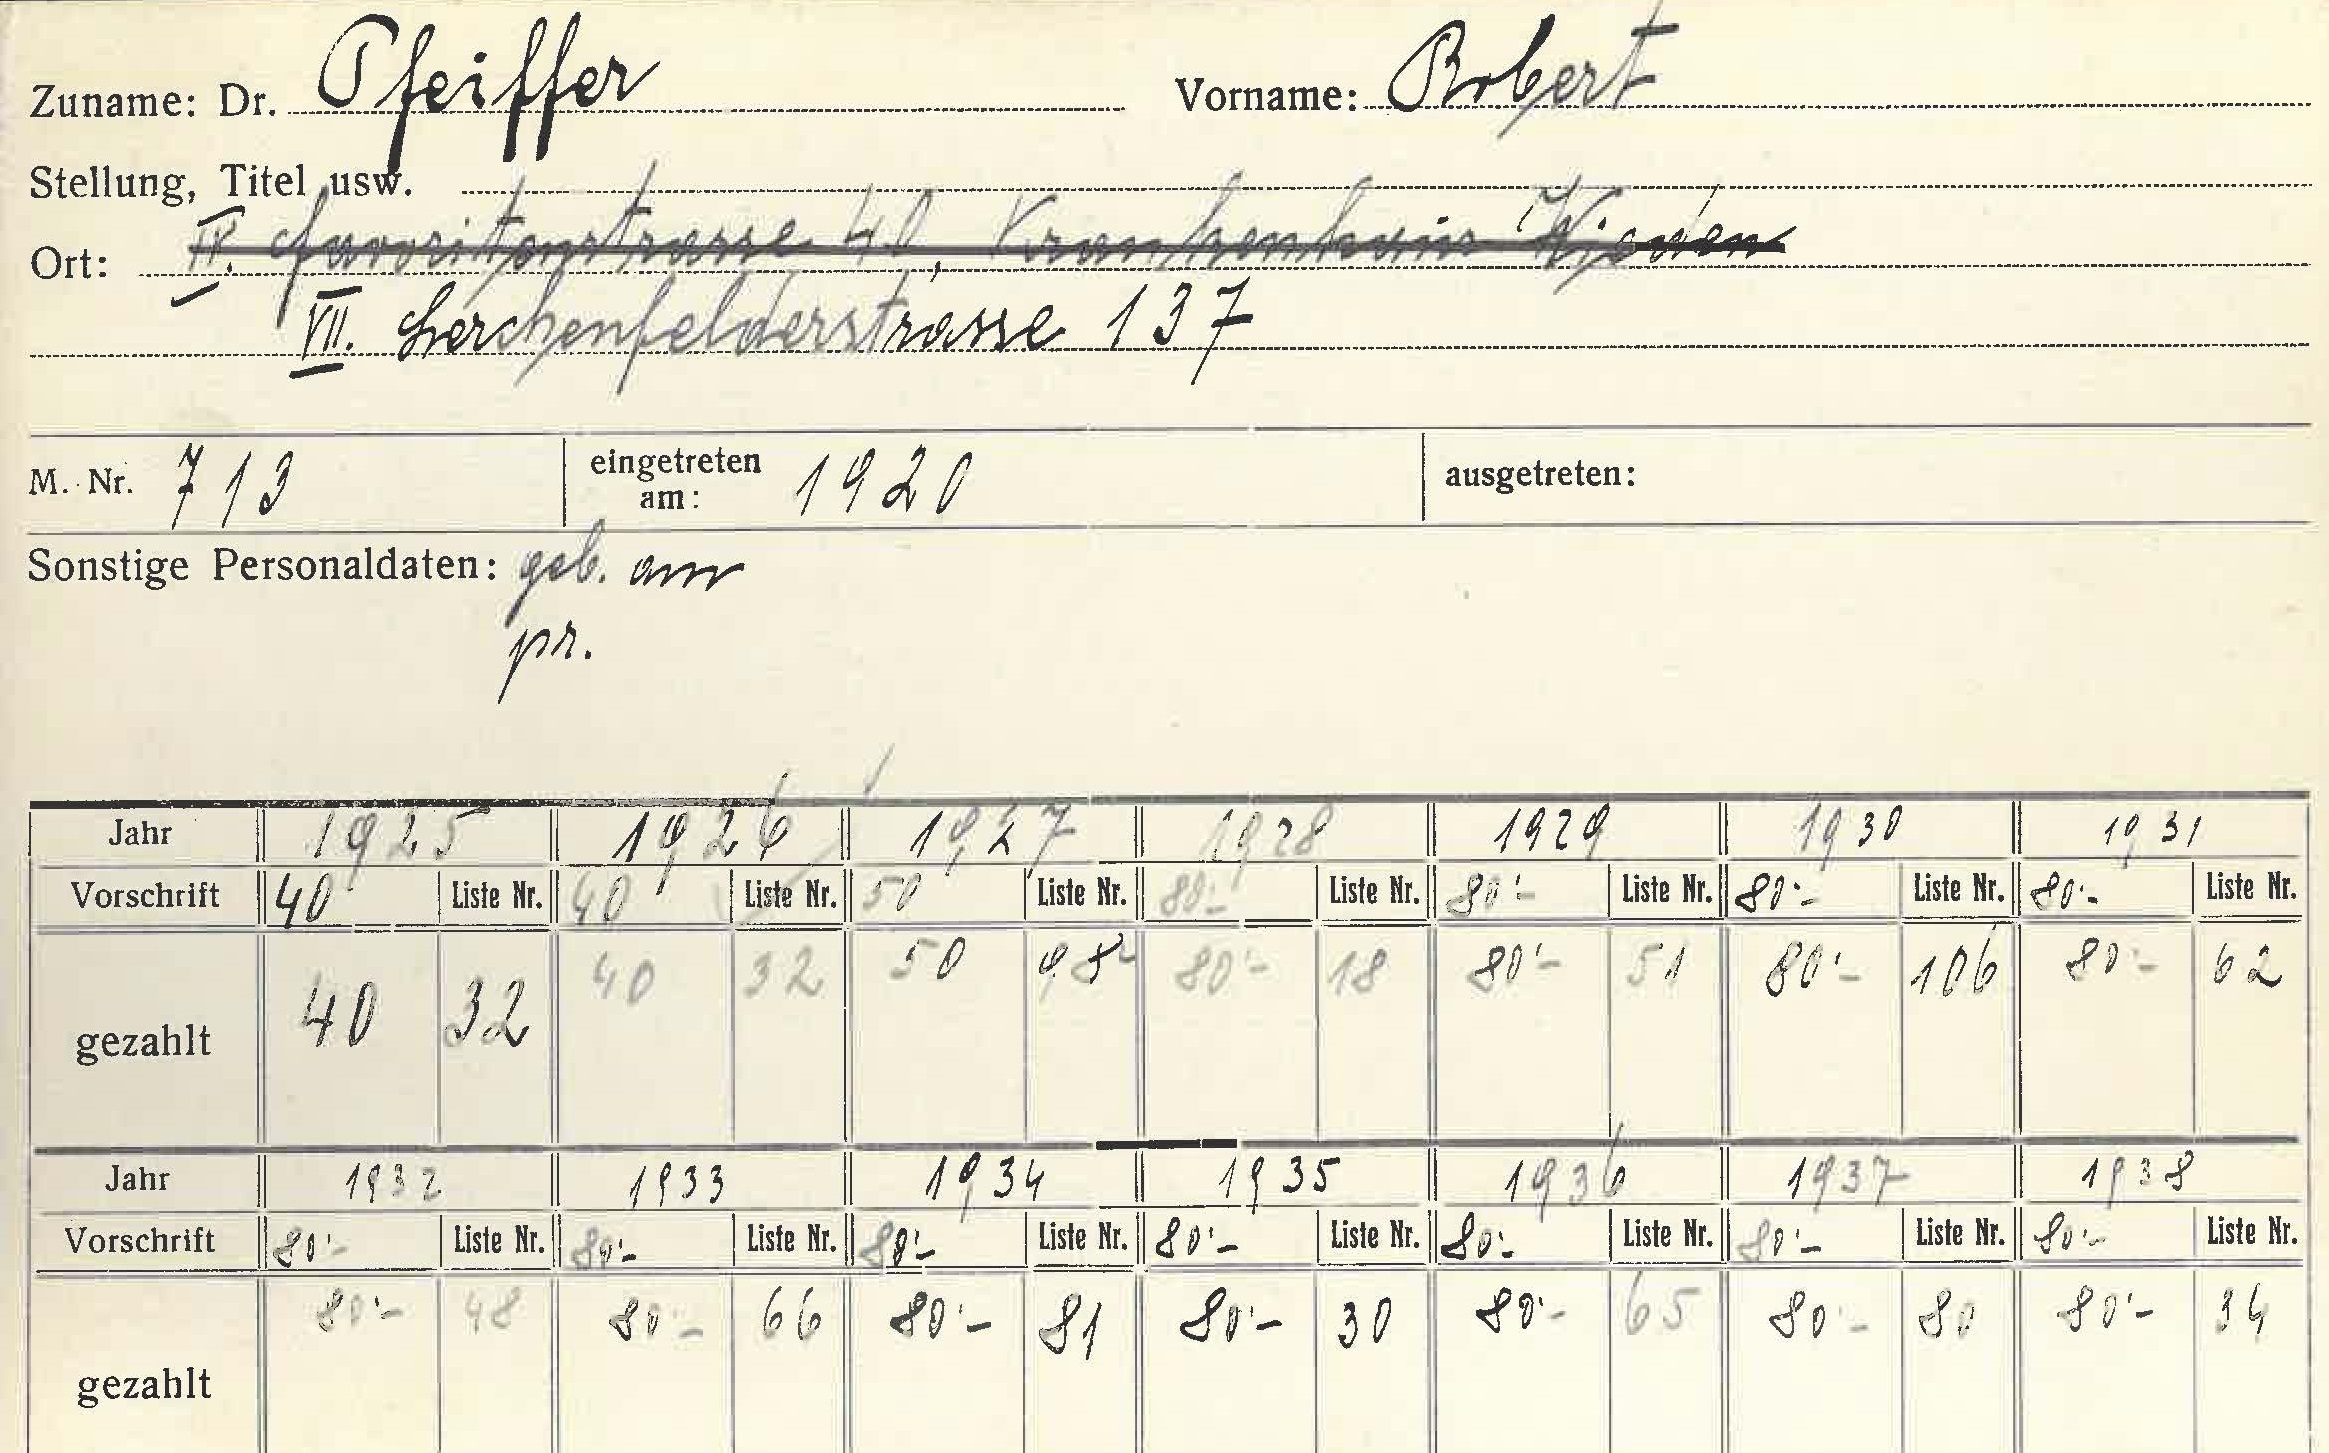 Zuname: Dr. Pfeiffer Vorname: Robert
Stellung, Titel usw.
Ort: IV. Favoritenstrasse 40, Krankenhaus Wieden
VII. Lerchenfelderstrasse 137
M. Nr. 713 eingetreten am: 1920 ausgetreten:
Sonstige Personaldaten: geb. am
pr.
Jahr 1925 1926 1927 1928 1929 1930 1931
Vorschrift 40 Liste Nr. 40 Liste Nr. 50 Liste Nr. 80·- Liste Nr. 80·- Liste Nr. 80·- Liste Nr. 80·- Liste Nr.
gezahlt 40 32 40 32 50 98 80·- 18 80·- 51 80·- 106 80·- 62
Jahr 1932 1933 1934 1935 1936 1937 1938
Vorschrift 80·- Liste Nr. 80·- Liste Nr. 80·- Liste Nr. 80·- Liste Nr. 80·- Liste Nr. 80·- Liste Nr. 80·- Liste Nr.
gezahlt 80·- 48 80·- 66 80·- 81 80·- 30 80·- 65 80·- 80 80·- 34